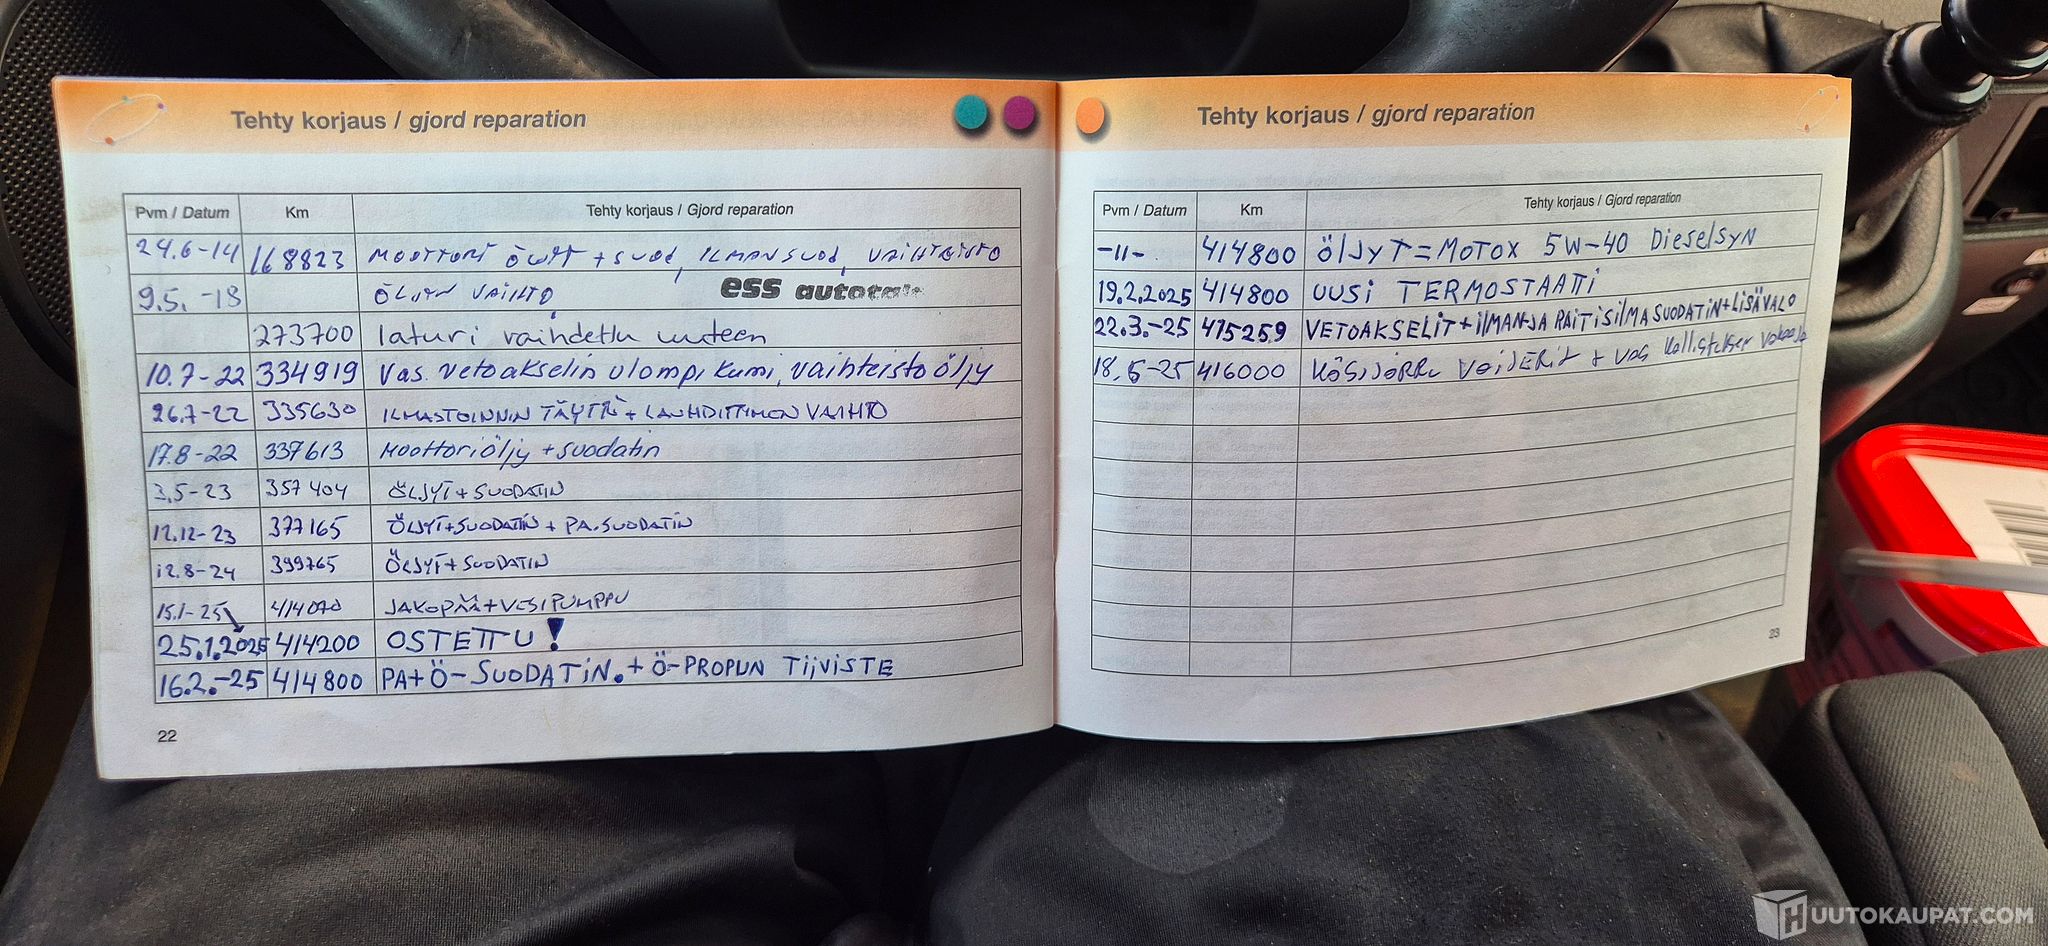 Tehty korjaus / gjord reparation
Pvm / Datum Km Tehty korjaus / Gjord reparation
24.6-14 168823 MOOTTORI ÖLJYT + SUOD, ILMANSUOD, VAIHTEISTO
9.5.-18 ÖLJYN VAIHTO ess
273700 laturi vaihdettu uuteen
10.7-22 334919 Vas. vetoakselin ulompi kumi, vaihteisto öljy
26.7-22 335630 ILMASTOINNIN TÄYTTÖ + LAUHDUTTIMEN VAIHTO
17.8-22 337613 Moottoriöljy + suodatin
3.5-23 357404 ÖLJYT + SUODATIN
12.12-23 377165 ÖLJYT+SUODATIN + PA.SUODATIN
12.8-24 399765 ÖLJYT + SUODATIN
15.1-25 414070 JAKOPÄÄ+VESIPUMPPU
25.1.2025 414200 OSTETTU!
16.2.-25 414800 PA+Ö-SUODATIN.+Ö-PROPUN TIIVISTE
22
Tehty korjaus / gjord reparation
Pvm / Datum Km Tehty korjaus / Gjord reparation
-11- 414800 ÖLJYT=MOTOX 5W-40 DieselSYN
19.2.2025 414800 UUSI TERMOSTAATTI
22.3.-25 415259 VETOAKSELIT+ILMAN-JA RAITISILMASUODATIN+LISÄVALO
18.5-25 416000 KÄSIJARRU VAIJERIT + VAS Kallistuksen Vakaaja
23
HUUTOKAUPAT.COM